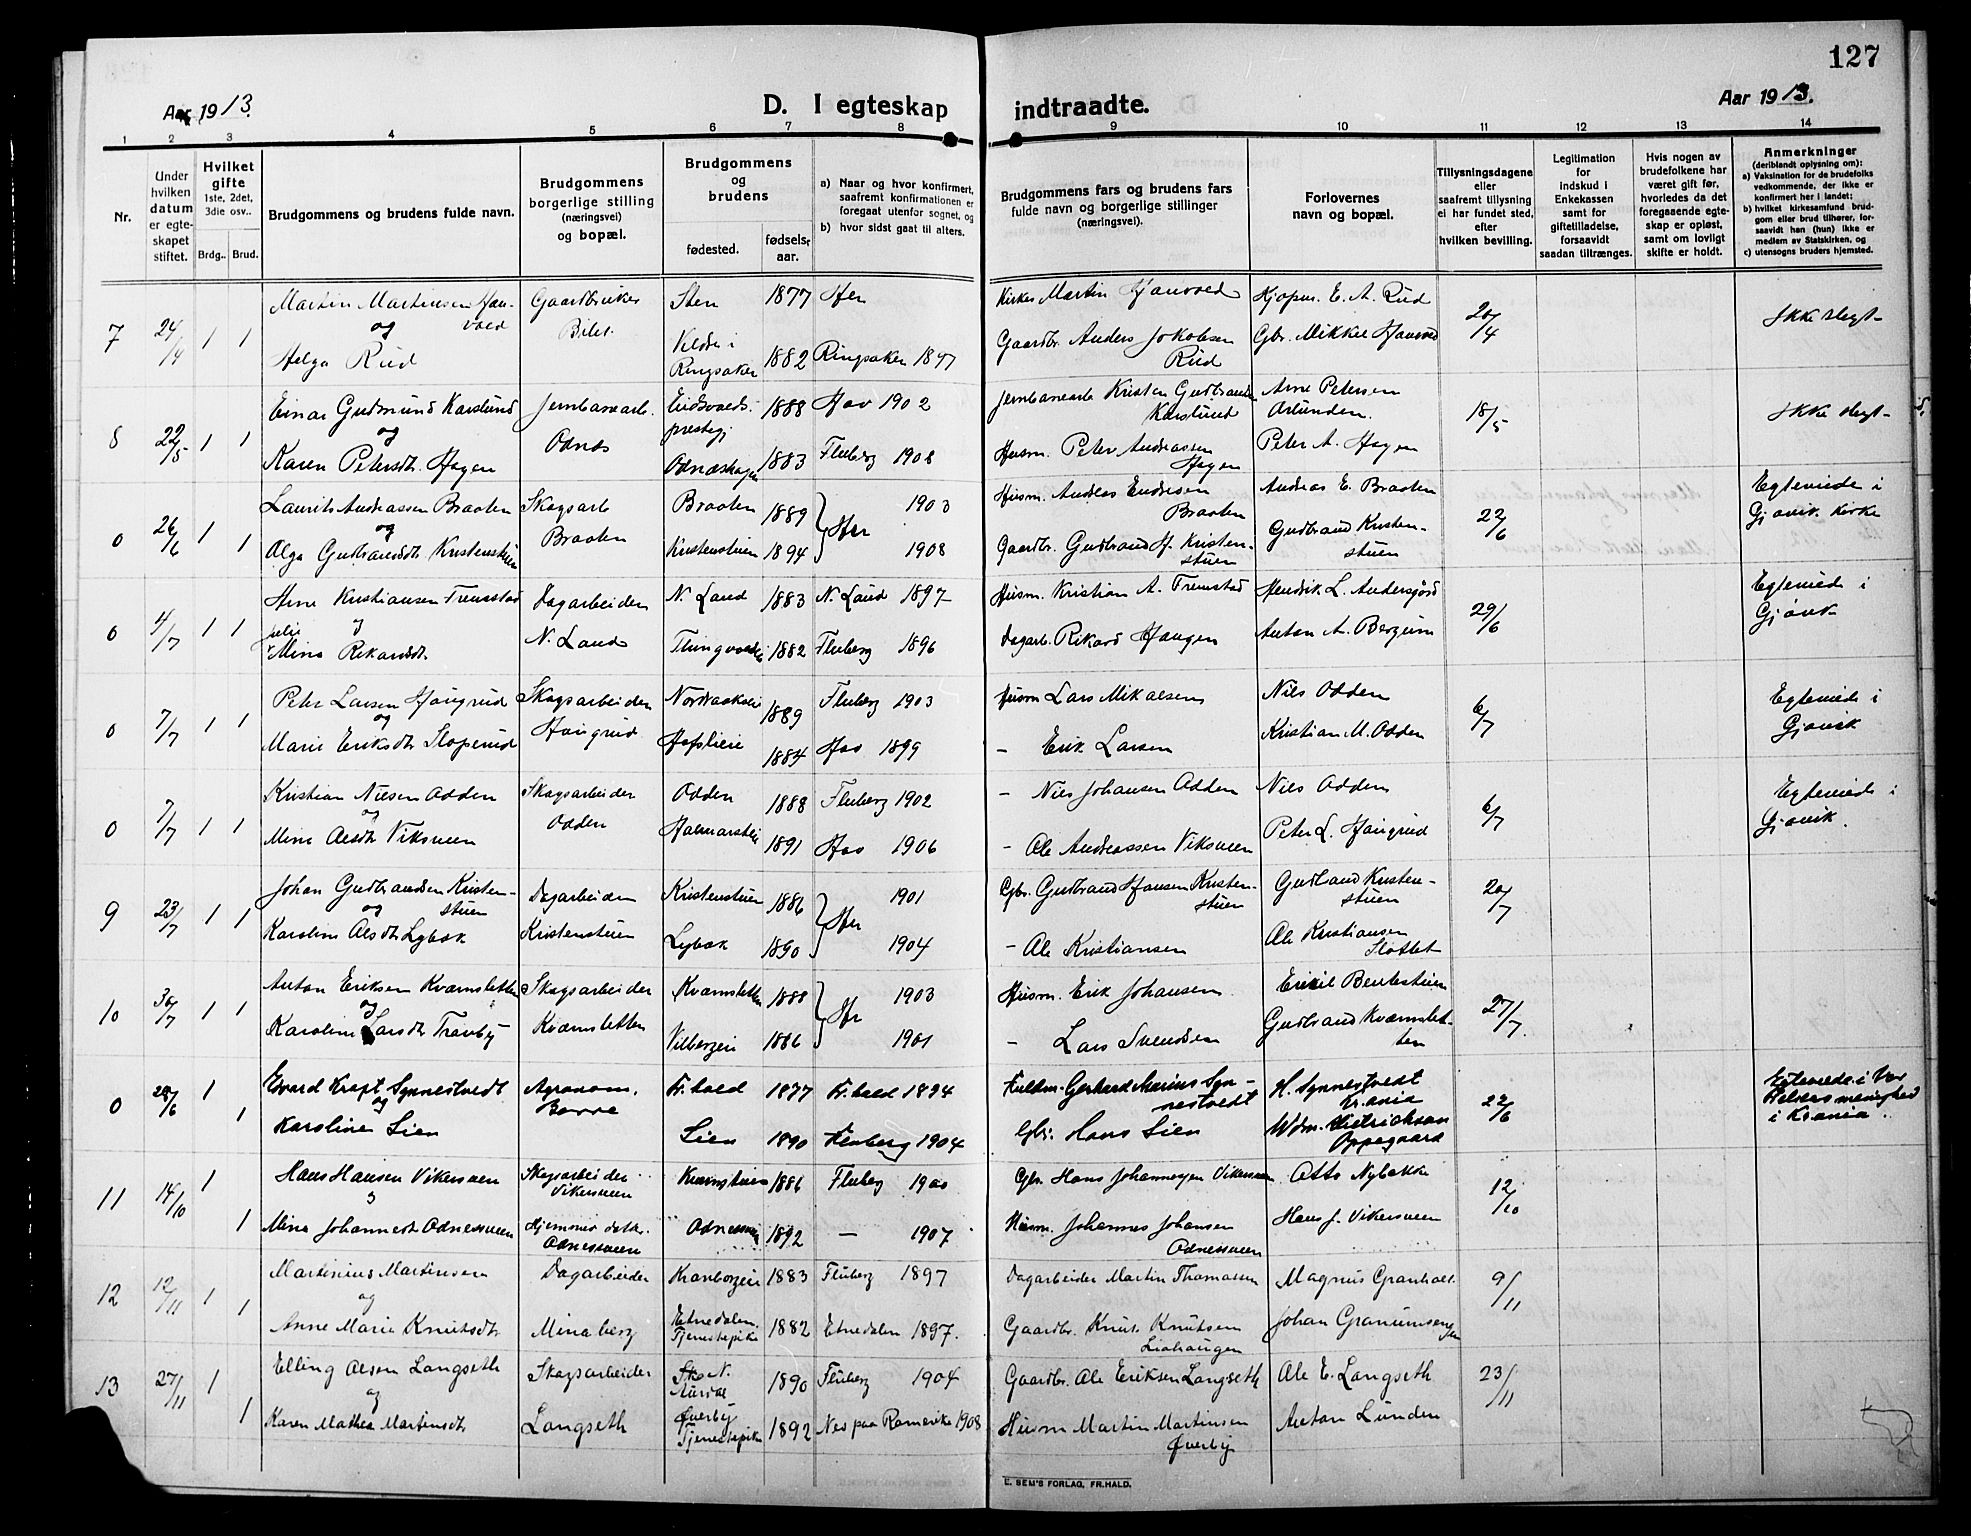 127
Aar 1913.
D. I egteskap
indtraadte.
Aar 1913.
1 2 3 4 5 6 7 8 9 10 11 12 13 14
Nr.
Under hvilken datum er egteskapet stiftet.
Hvilket gifte 1ste, 2det, 3die osv..
Brdg.. Brud.
Brudgommens og brudens fulde navn.
Brudgommens borgerlige stilling (næringsvei) og bopæl.
Brudgommens og brudens
fødested.
fødselsaar.
a) Naar og hvor konfirmert, saafremt konfirmationen er foregaat utenfor sognet, og
b) hvor sidst gaat til alters.
Brudgommens fars og brudens fars fulde navn og borgerlige stillinger (næringsvei).
Forlovernes navn og bopæl.
Tillysningsdagene eller saafremt tillysning ei har fundet sted, efter hvilken bevilling.
Legitimation for Indskud i Enkekassen samt for giftetilladelse, forsaavidt saadan tiltrænges.
Hvis nogen av brudefolkene har været gift før, hvorledes da det foregaaende egteskap er opløst, samt om lovligt skifte er holdt.
Anmerkninger (deriblandt oplysning om): a) Vaksination for de brudefolks vedkommende, der ikke er konfirmert her i landet; b) hvilket kirkesamfund brudgom eller brud tilhører, forsaavidt han (hun) ikke er medlem av Statskirken, og c) utensogns bruders hjemsted.
7 24/4 1 1 Martin Martinsen Hanvold Gaardbruker Sten 1877 Her Martin Hanvold Kjøpm. E. A. Rud 20/4 Ikke slegt
og
Helga Rud Ringsaker 1882 Ringsaker 1897 Gaardbr. Anders Jakobsen Rud Gbr. Mikkel Hanvold
8 22/5 1 1 Einar Gudmund Karslund Jernbanearb. Eidsvolds prestegj 1888 Hov 1902 Jernbanearb Kristen Gudbrandsen Karslund Arne Petersen 18/5 Ikke slegt
og Odnes
Karen Petersdt. Hagen 1883 Fluberg 1908 Husm. Peter Andreassen Hagen Peter A. Hagen
0 26/6 1 1 Laurits Andreassen Braaten Skogsarb Braaten 1889 Her 1903 Husm. Andreas Endresen Braaten Andreas E. Braaten 22/6 Egteviede i Gjøvik kirke
og Braaten
Olga Gudbrandsdt Kristenstuen Kristenstuen 1894 1908 Gaardbr. Gudbrand H. Kristenstuen Gudbrand Kristenstuen
0 4/7 1 1 Arne Kristiansen Fremstad Dagarbeider N. Land 1883 N. Land 1897 Husm. Kristian A. Fremstad Hendrik L. Andersjord 29/6 Egteviede i Gjøvik
Julie Mina Rikardsdt. N. Land 1882 Fluberg 1896 Dagarb. Rikard Haugen Anton A. Bergum
0 7/7 1 1 Peter Larsen Haugrud Skogsarbeider 1889 Fluberg 1903 Husm Lars Mikalsen Nils Odden 6/7 Egteviede i Gjøvik
og Haugrud
Marie Eriksdt. Hofslien 1884 Hov 1899 – Erik Larsen Kristian M. Odden
0 7/7 1 1 Kristian Nilsen Odden Skogsarbeider Odden 1888 Fluberg 1902 – Nils Johansen Odden Nils Odden 6/7 Egteviede i Gjøvik.
og Odden
Mina Olsdt Viksveen 1891 Hov 1906 – Ole Andreassen Viksveen Peter L. Haugrud
9 23/7 1 1 Johan Gudbrandsen Kristenstuen Dagarbeider Kristenstuen 1886 Her 1901 Gbr. Gudbrand Hansen Kristenstuen Gudbrand Kristenstuen 20/7
og
Karoline Olsdt Lybæk Kristenstuen Lybæk 1890 1904 – Ole Kristiansen Ole Kristiansen Slottet
10 30/7 1 1 Anton Eriksen Kværnsletten Skogsarbeider Kværnsletten 1888 Her 1903 Husm. Erik Johansen 27/7
og
Karoline Larsdt. Tranby Kværnsletten Vilbergei 1886 1901 – Lars Svendsen Gudbrand Kværnsletten
0 28/6 1 1 Edvard Kraft Synnestvedt Agronom. Fr. hald 1877 Fr. hald 1894 Fuldm. Gerhard Marius Synnestvedt H. Synnestvedt Kr.ania 22/6 Egteviede i Vor Frelsers menighed i Kr.ania.
og Borre
Karoline Lien Lien 1890 Fluberg 1904 Gbr. Hans Lien Wdm. Dietrichson Oppegaard
11 14/10 1 1 Hans Hansen Vikersveen Skogsarbeider Vikersveen Kværnstuen 1886 Fluberg 1900 Gbr. Hans Johannesen Vikersveen Otto Nybakke 12/10
Mina Johannesdt Odnessveen Hjemmev. datter. Odnessveen 1892 – 1907 Husm. Johannes Johansen Odnessveen Hans J. Vikersveen
12 12/11 1 1 Martinius Martinsen Dagarbeider Kranborgei 1883 Fluberg 1897 Dagarbeider Martin Thomassen Magnus Granholt 9/11
og
Anne Marie Knutsdt. Minaberg Etnedalen. Tjenestepike 1882 Etnedalen 1897. Gaardbr. Knut Knutsen Liahaugen
13 27/11 1 1 Elling Olsen Langseth Skogsarbeider N. Aurdal 1890 Fluberg 1904 Gaardbr. Ole Eriksen Langseth Ole E. Langseth 23/11
og
Karen Mathea Martinsdt. Langseth Øverby Tjenestepike 1892 Nes paa Romerike 1908 Husm Martin Martinsen Øverby Anton Lunden
E. SEM'S FORLAG, FR.HALD.